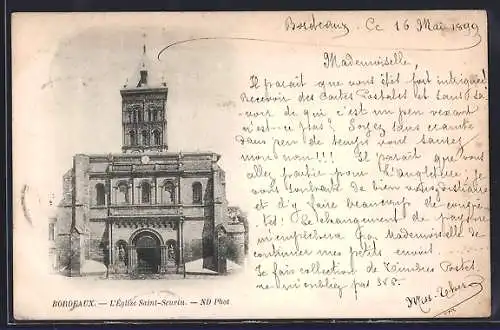 Bordeaux Ce 16 Mai 1899
Mademoiselle,
Il parait que vous êtes fort intriguée
Recevoir des Cartes Postales et sans sa-
voir de qui c'est un peu vexant
n'est-ce pas? Soyez sans crainte
dans peu de temps vous saurez
mon nom!!! Il parait que vous
allez partir pour l'Angleterre, je
vous souhaite de bien vous
et d'y faire beaucoup de
Le changement de pays ne
m'empêchera pas Mademoiselle de
continuer mes petits envois.
Je fais collection de Timbres Poste,
ne m'oubliez pas S.V.P.
BORDEAUX. — L'Église Saint-Seurin. — ND Phot